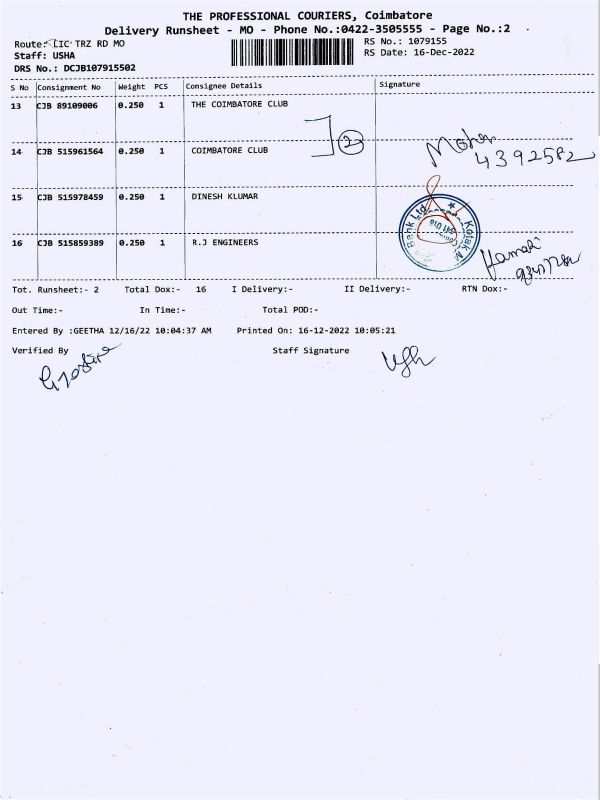 THE PROFESSIONAL COURIERS, Coimbatore
Delivery Runsheet - MO - Phone No.:0422-3505555 - Page No.:2
Route: LIC TRZ RD MO
RS No.: 1079155
Staff: USHA
RS Date: 16-Dec-2022
DRS No.: DCJB107915502
S No Consignment No Weight PCS Consignee Details Signature
13 CJB 89109006 0.250 1 THE COIMBATORE CLUB
2
14 CJB 515961564 0.250 1 COIMBATORE CLUB
Mohan
4392582
15 CJB 515978459 0.250 1 DINESH KLUMAR
Bank Ltd. ★ Kotak M
16 CJB 515859389 0.250 1 R.J ENGINEERS
Tot. Runsheet:- 2 Total Dox:- 16 I Delivery:- II Delivery:- RTN Dox:-
Out Time:- In Time:- Total POD:-
Entered By :GEETHA 12/16/22 10:04:37 AM Printed On: 16-12-2022 10:05:21
Verified By Staff Signature